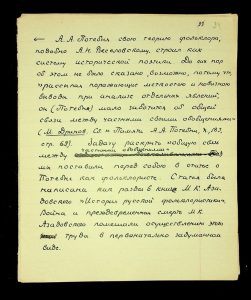 33 34
← А. А. Потебня свою теорию фольклора,
подобно А. Н. Веселовскому, строил как
систему исторической поэтики. До сих пор
об этом не было сказано, возможно, потому, что
"рассыпая поражающие меткостью и новизной
выводы при анализе отдельных явлений,
он (Потебня) мало заботился об общей
связи между частными своими обобщениями"
(М. Дринов. Памяти А. А. Потебни, Х.,
стр. 68). Задачу раскрыть "общую связь
между частными обобщениями"
мы поставили перед собой в статье о
Потебне как фольклористе. Статья была
написана как раздел в книге М. К. Аза-
довского "История русской фольклористики".
Война и преждевременная смерть М. К.
Азадовского помешали осуществлению этого
труда в первоначально задуманном
виде.